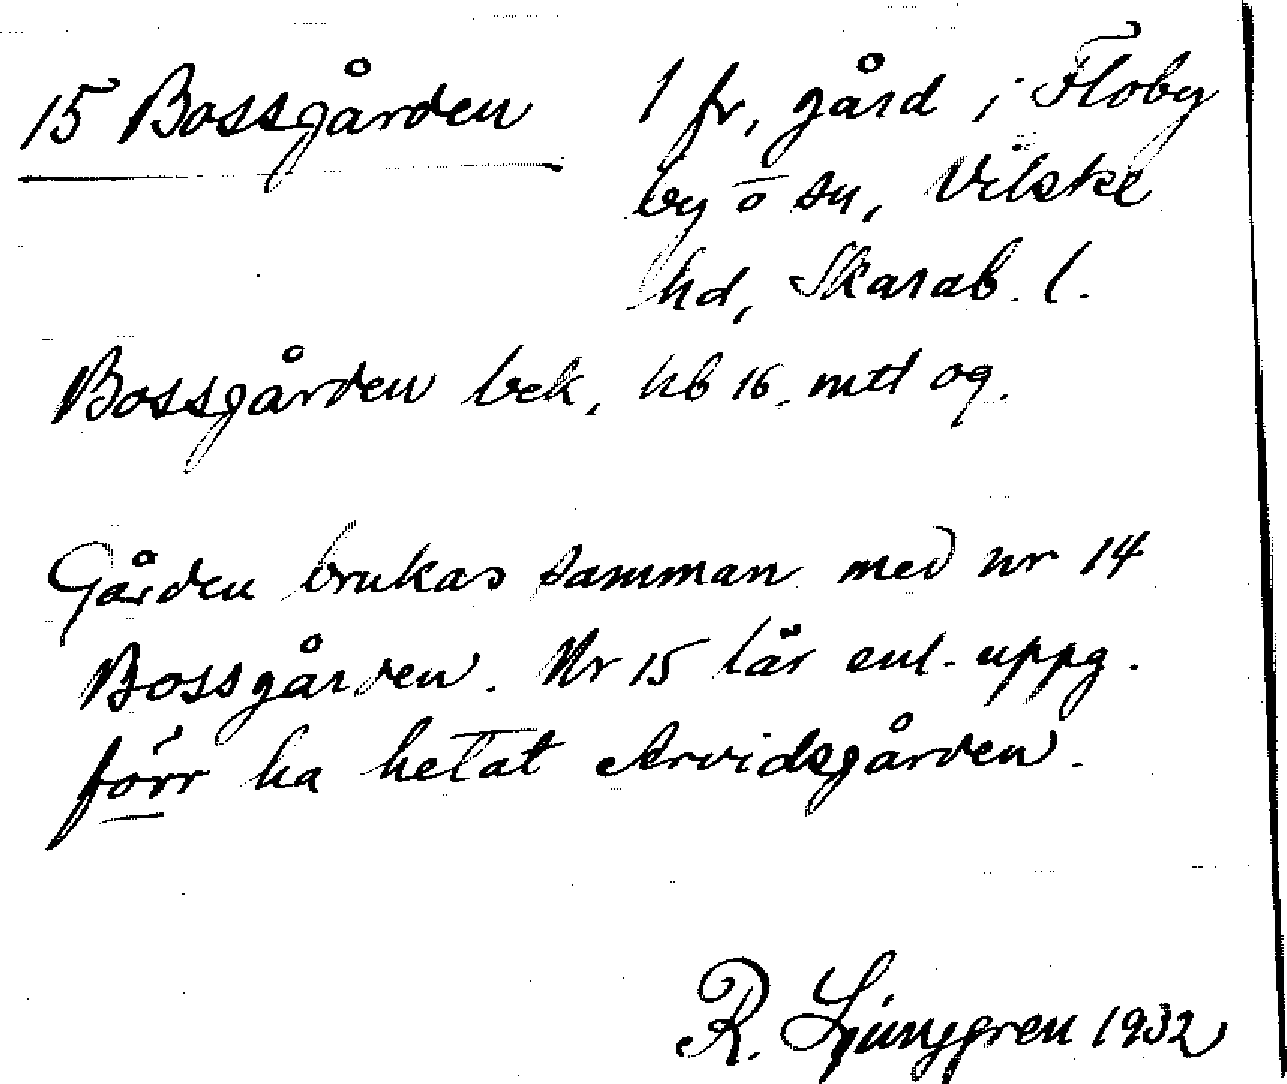 15 Bossgården
1 fr. gård i Floby
by o sn, Vilske
hd, Skarab. l.
Bossgården bek. hb 16. mtl og.
Gården brukas samman med nr 14
Bossgården. Nr 15 lär enl. uppg.
förr ha hetat Arvidsgården.
R. Ljunggren 1932